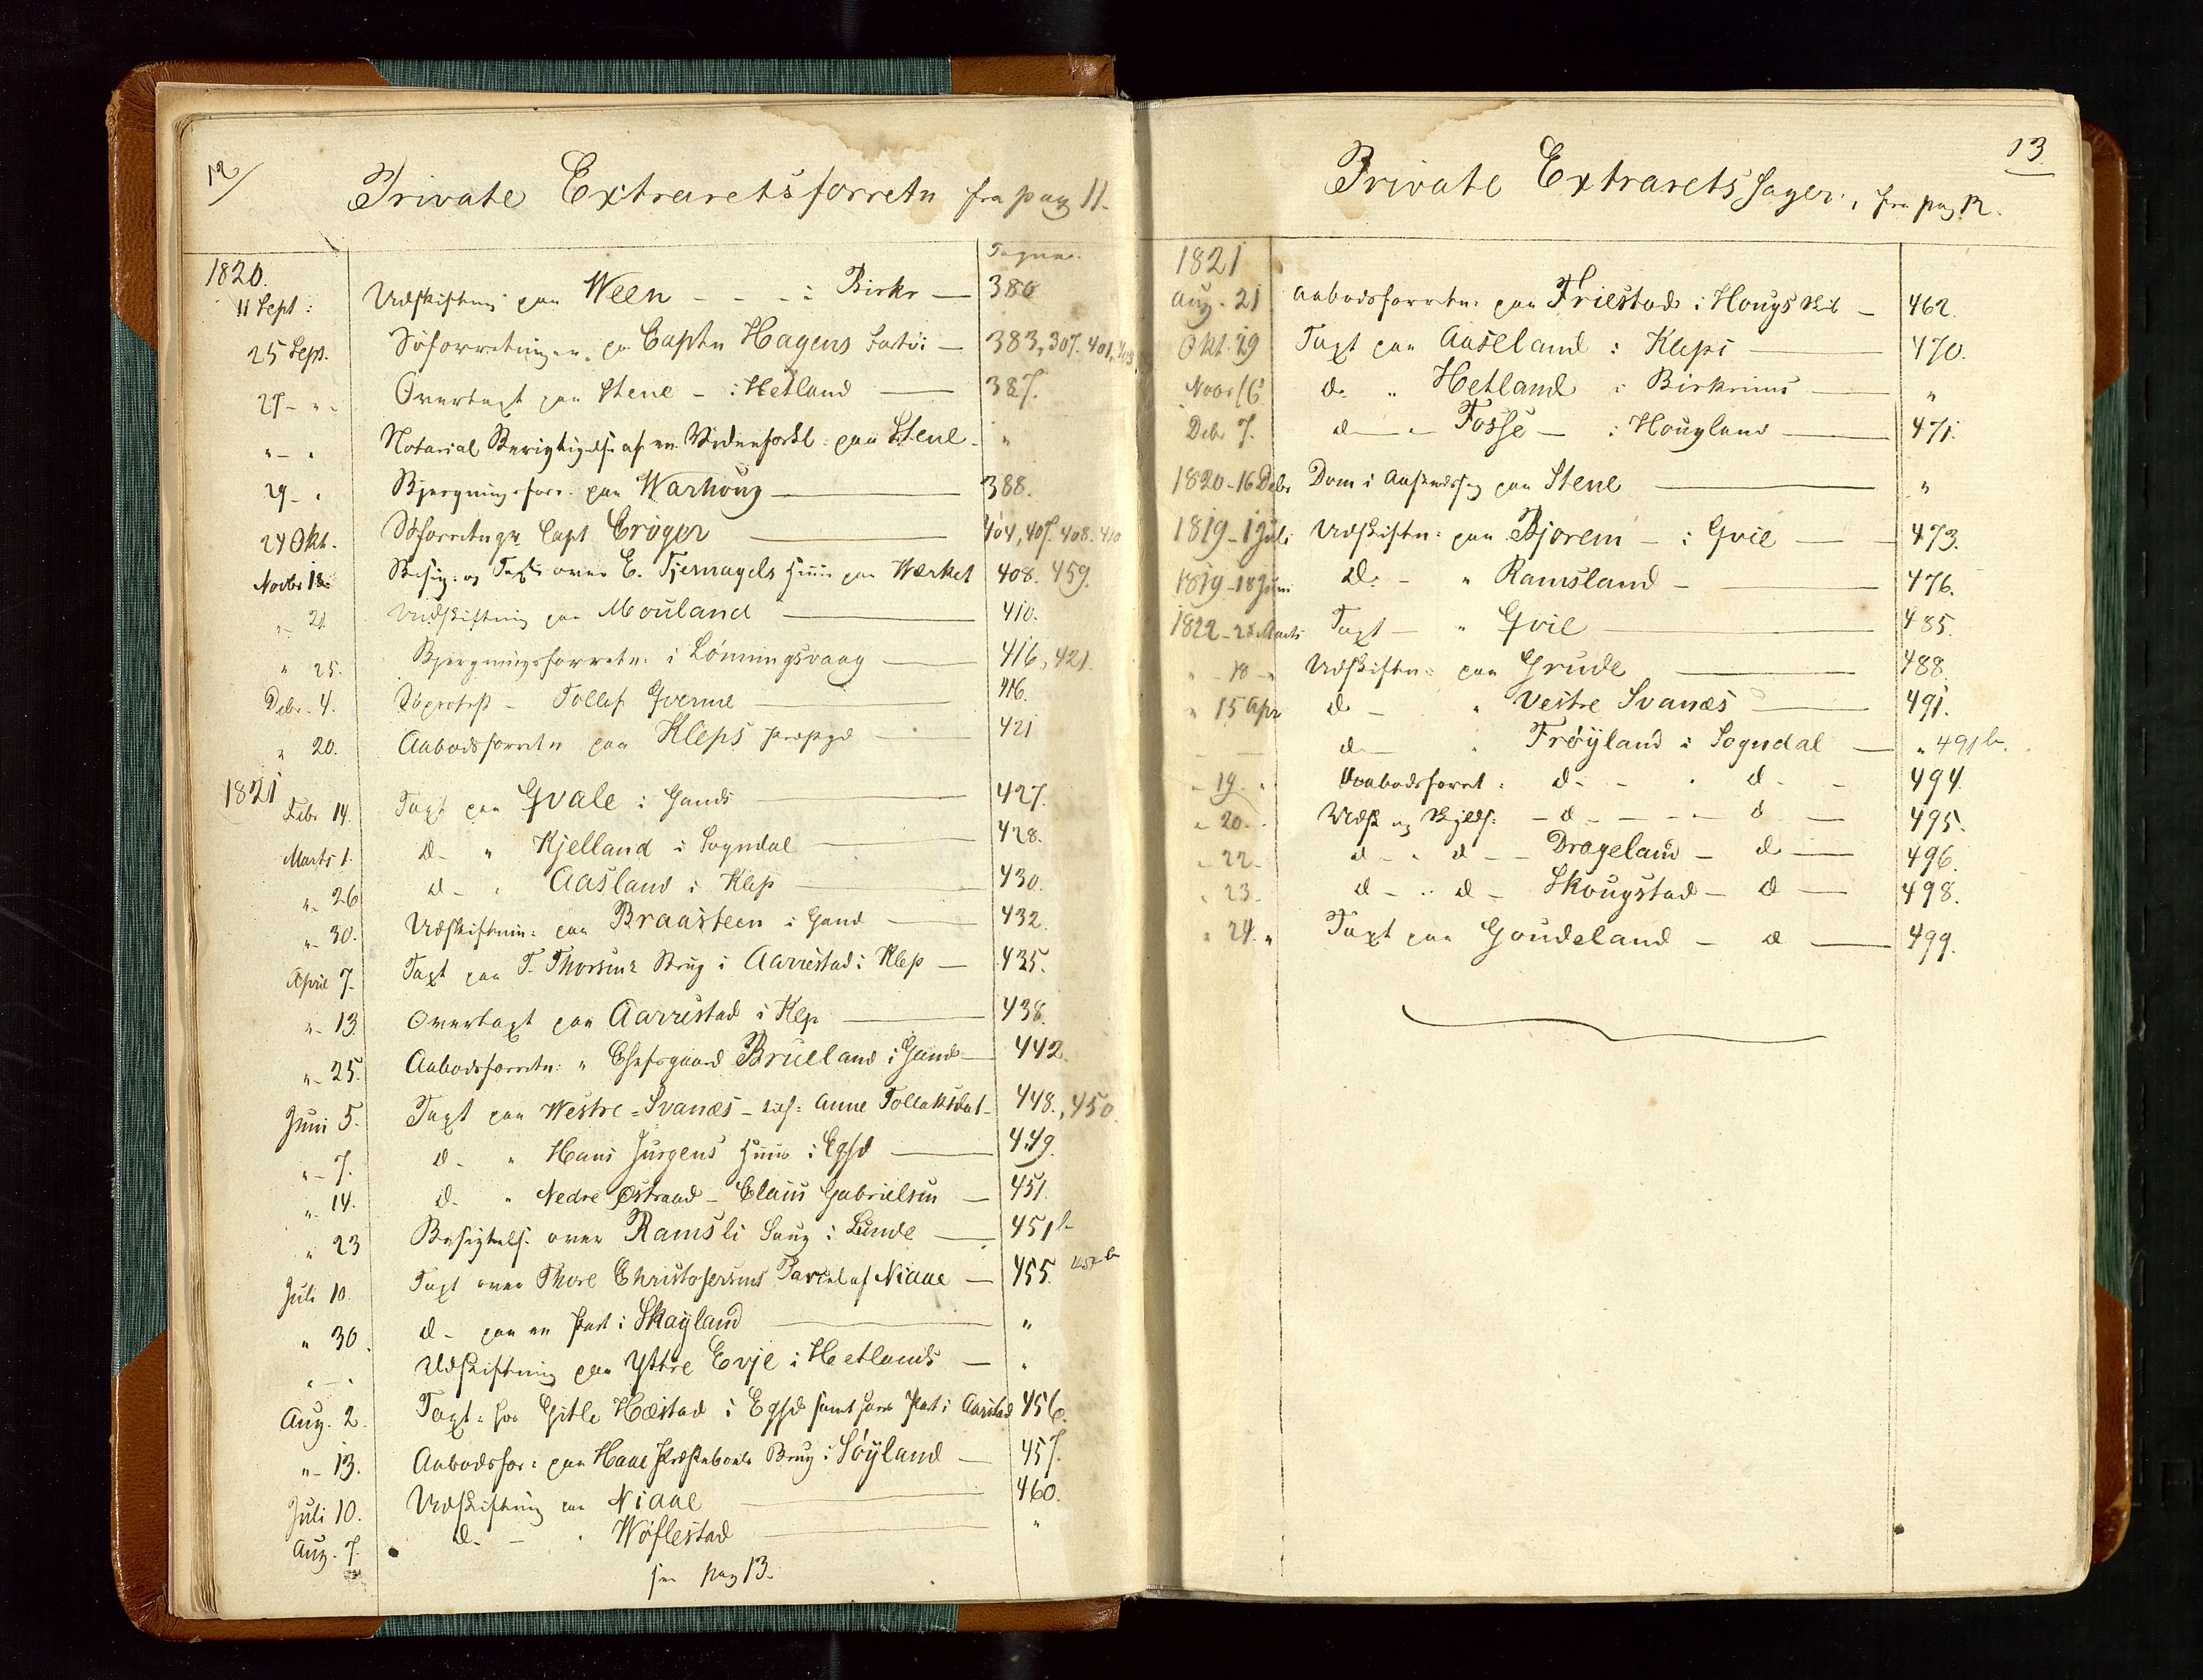 12/
Private Extraretsforretn fra pag 11.
Pagina.
1820.
11 Sept: Udskiftning paa Ween - - - i Birkr — 380
25 Sept. Søforretningen. paa Captn Hagens Fartøi — 383, 307. 401, 403
27 - " - Overtaxt paa Stene - i Hetland — 387.
" - " Notarial Berigtigelse af en Vidneforkl: paa Stene - "
29 - " Bjergningsforr. paa Warhoug — 388.
24 Okt. Søforretngr Capt Crøger — 404, 407. 408. 410
Novbr 18. Besigt: og Taxt over E. Tjernagels Huus paa Værket 408. 459.
" 21. Udskiftning paa Mouland — 410.
" 25. Bjergningsforretn: i Lonningsvaag — 416, 421.
Debr. 4. Søprotest - Tollef Qverme — 416.
" 20. Aabodsforretn paa Kleps præstgd — 421
1821
Febr 14. Taxt paa Qvale i Gands — 427.
Marts 1. d. " Kjelland i Sogndal — 428.
" 26 d - " Aasland i Klep — 430.
" 30. Udskiftnin: paa Braasteen i Gand — 432.
April 7. Taxt paa T. Thorsens Brug i Aarrestad i Klep — 435.
" 13. Overtaxt paa Aarrestad i Klep — 438.
" 25. Aabodsforretn: " Chefsgaard Brueland i Gand — 442.
Juni 5. Taxt paa Westre-Svanæs - tilh: Anne Tollaksdat - 448., 450
" - 7. d - " Hans Jürgens Huus i Egsd — 449.
" 14. d. " Nedre Østraad - Claus Gabrielsen — 451.
" 23 Besigtels. over Ramsli Saug i Lunde — 451 b
Juli 10. Taxt over Thore Christofersens Parcel af Niaae — 455. 457 b
" 30. d - paa en Part i Skayland — "
" - " Udskiftning paa Yttre Evje i Hetlands — "
Aug. 2. Taxt: hos Gitle Hæstad i Egsd samt hans Part i Aarstad 456.
" - 13. Aabodsfor: paa Haae Præstebords Brug i Søyland — 457.
Juli 10. Udskiftning paa Niaae — 460.
Aug. 7. d. - " Wøflestad — "
paa pag 13.
13.
Private Extrarets Sager, fra pag. 12.
1821
Aug. 21 Aabodsforretn: paa Friestad i Hougs Skib — 462.
Okt. 29 Taxt paa Aaseland i Kleps — 470.
Novbr 16 d. " Hetland i Birkrims — "
Debr 7. d — " Fosse — i Hougland — 471.
1820 - 16 Debr Dom i Aastedssag paa Stene — "
1819 - 1 Juli Udskiftn: paa Bjorem - i Gvie — 473.
1819 - 18 Juni D. - " Ramsland — 476.
1822 - 28 Marts Taxt — " Qvie — 485.
" - 18 - " Udskiftn: paa Grude — 488.
" 15 Apr d - " Vestre Svanæs — 491.
d - " Frøyland i Sogndal — " 491 b.
- 19. " Aabodsforret: d - - " d - - 494.
" 20. - Udsk og Skylds: - d - - - - d — 495.
- 22 - d - " d - - Drageland - d — 496.
" 23 - d - " d - Skougstad - d — 498.
" 24. " Taxt paa Goudeland - d — 499.